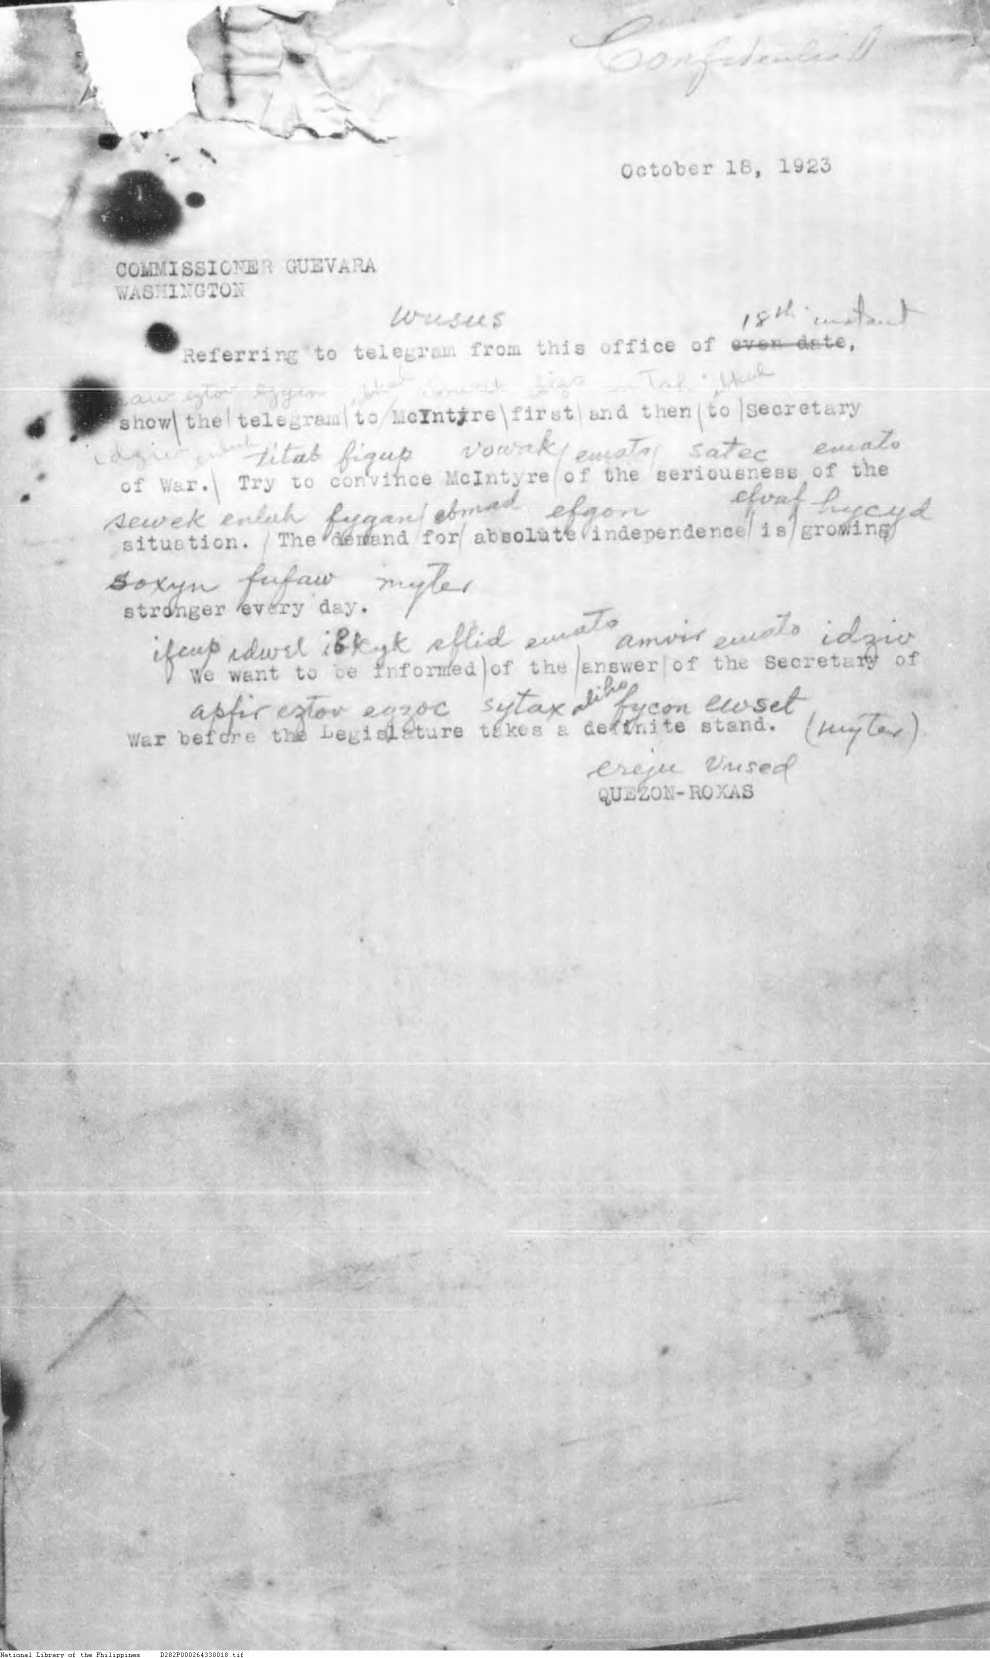 Confidential
October 18, 1923
COMMISSIONER GUEVARA
WASHINGTON
wusus 18th instant
Referring to telegram from this office of even date,
show the telegram to McIntyre first and then to Secretary
titab figup vowak emato satec emato
of War. Try to convince McIntyre of the seriousness of the
sewek enluh fygan ebmad efgon efvaf hycyd
situation. The demand for absolute independence is growing
soxyn fufaw myter
stronger every day.
ifcup idwel emato amvir emato idziv
We want to be informed of the answer of the Secretary of
apfir eztov eozoc sytax fycon ewset
War before the Legislature takes a definite stand. (myter)
ereju vused
QUEZON-ROXAS
National Library of the Philippines D282P000264338018.tif